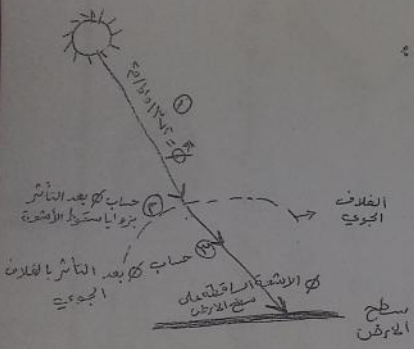 ①
Φ = ١٣٧٢ واط/م²
② حساب Φ بعد التأثر
بزوايا سقوط الأشعة
الغلاف
الجوي
③ حساب Φ بعد التأثر بالغلاف
الجوي
Φ الأشعة الساقطة على
سطح الأرض
سطح
الأرض